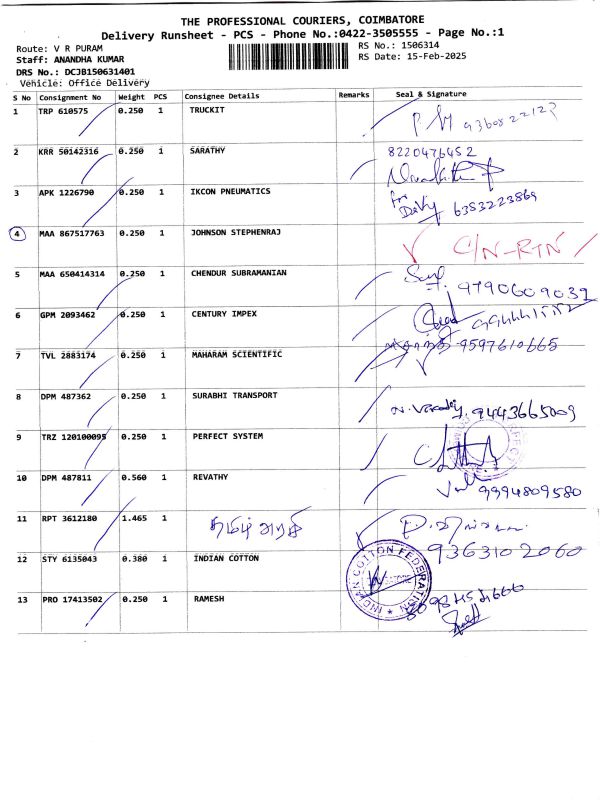 THE PROFESSIONAL COURIERS, COIMBATORE
Delivery Runsheet - PCS - Phone No.:0422-3505555 - Page No.:1
Route: V R PURAM
RS No.: 1506314
Staff: ANANDHA KUMAR
RS Date: 15-Feb-2025
DRS No.: DCJB150631401
Vehicle: Office Delivery
S No Consignment No Weight PCS Consignee Details Remarks Seal & Signature
1 TRP 610575 0.250 1 TRUCKIT
2 KRR 50142316 0.250 1 SARATHY 8220476452
3 APK 1226790 0.250 1 IKCON PNEUMATICS 6383223869
4 MAA 867517763 0.250 1 JOHNSON STEPHENRAJ C/N-RTN
5 MAA 650414314 0.250 1 CHENDUR SUBRAMANIAN 9790609032
6 GPM 2093462 0.250 1 CENTURY IMPEX
7 TVL 2883174 0.250 1 MAHARAM SCIENTIFIC 9597610665
8 DPM 487362 0.250 1 SURABHI TRANSPORT 9443665009
9 TRZ 120100095 0.250 1 PERFECT SYSTEM
10 DPM 487811 0.560 1 REVATHY 9994809580
11 RPT 3612180 1.465 1 தமிழ் அரசி 9363102060
12 STY 6135043 0.380 1 INDIAN COTTON INDIAN COTTON FEDERATION
13 PRO 17413502 0.250 1 RAMESH